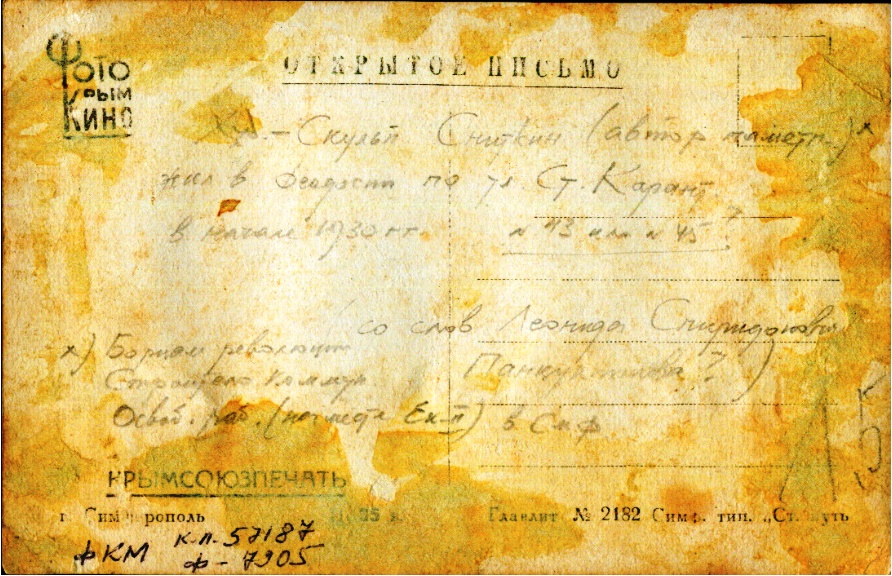 ФОТО
КРЫМ
КИНО
ОТКРЫТОЕ ПИСЬМО
Ху.-Скульп Сниткин (автор паметн.)×
жил в Феодосии по ул. Ст. Карант.
в начале 1930 гг. № 43 или № 45?
со слов Леонида Спиридонович
×) Борцам революции
Строителю Коммун
Освоб. раб. (на месте Ек-II) в Симф
КРЫМСОЮЗПЕЧАТЬ
г. Симферополь
35 к.
Главлит № 2182 Симф. тип. „Ст. путь
ФКМ К.П. 57187
Ф - 7905